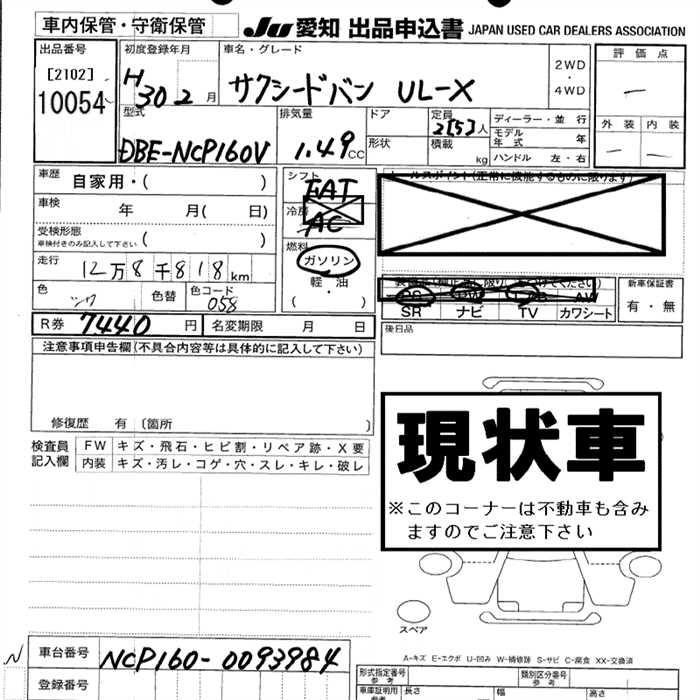 車内保管・守衛保管
JU 愛知 出品申込書 JAPAN USED CAR DEALERS ASSOCIATION
出品番号
[2102]
10054
初度登録年月
H30 2 月
車名・グレード
サクシードバン UL-X
2WD
・
4WD
評価点
ー
外装 内装
ー ー
型式
DBE-NCP160V
排気量
1.49 CC
ドア
形状
定員
2[5]人
積載
kg
ディーラー・並行
モデル年式 年
ハンドル 左・右
車歴 自家用・( )
車検 年 月( 日)
受検形態
車検付きのみ記入して下さい ( )
走行 12万8千818km
色
シロ
色替
色コード
058
シフト
FAT
冷房
AC
燃料
ガソリン
軽・油
( )
セールスポイント(正常に機能するものに限ります)
AW
SR ナビ TV カワシート
新車保証書
有・無
R券 7440 円 名変期限 月 日
後日品
注意事項申告欄(不具合内容等は具体的に記入して下さい)
修復歴 有〔箇所 〕
検査員記入欄
FW キズ・飛石・ヒビ割・リペア跡・X要
内装 キズ・汚レ・コゲ・穴・スレ・キレ・破レ
現状車
※このコーナーは不動車も含み
ますのでご注意下さい
スペア
A-キズ E-エクボ U-凹み W-補修跡 S-サビ C-腐食 XX-交換済
N
車台番号 NCP160-0093984
登録番号
形式指定番号
参考
類別区分番号
参考
車庫証明用
参考
長さ 幅 高さ